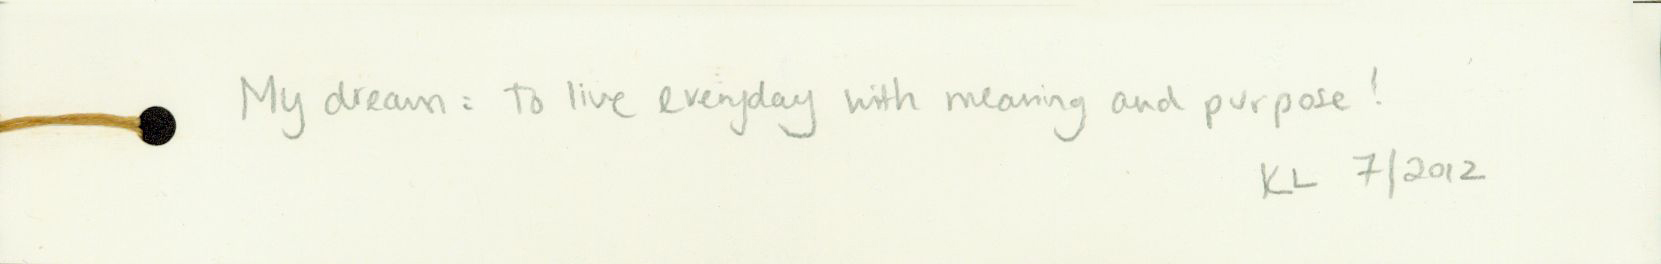 My dream: to live everyday with meaning and purpose!
KL 7/2012